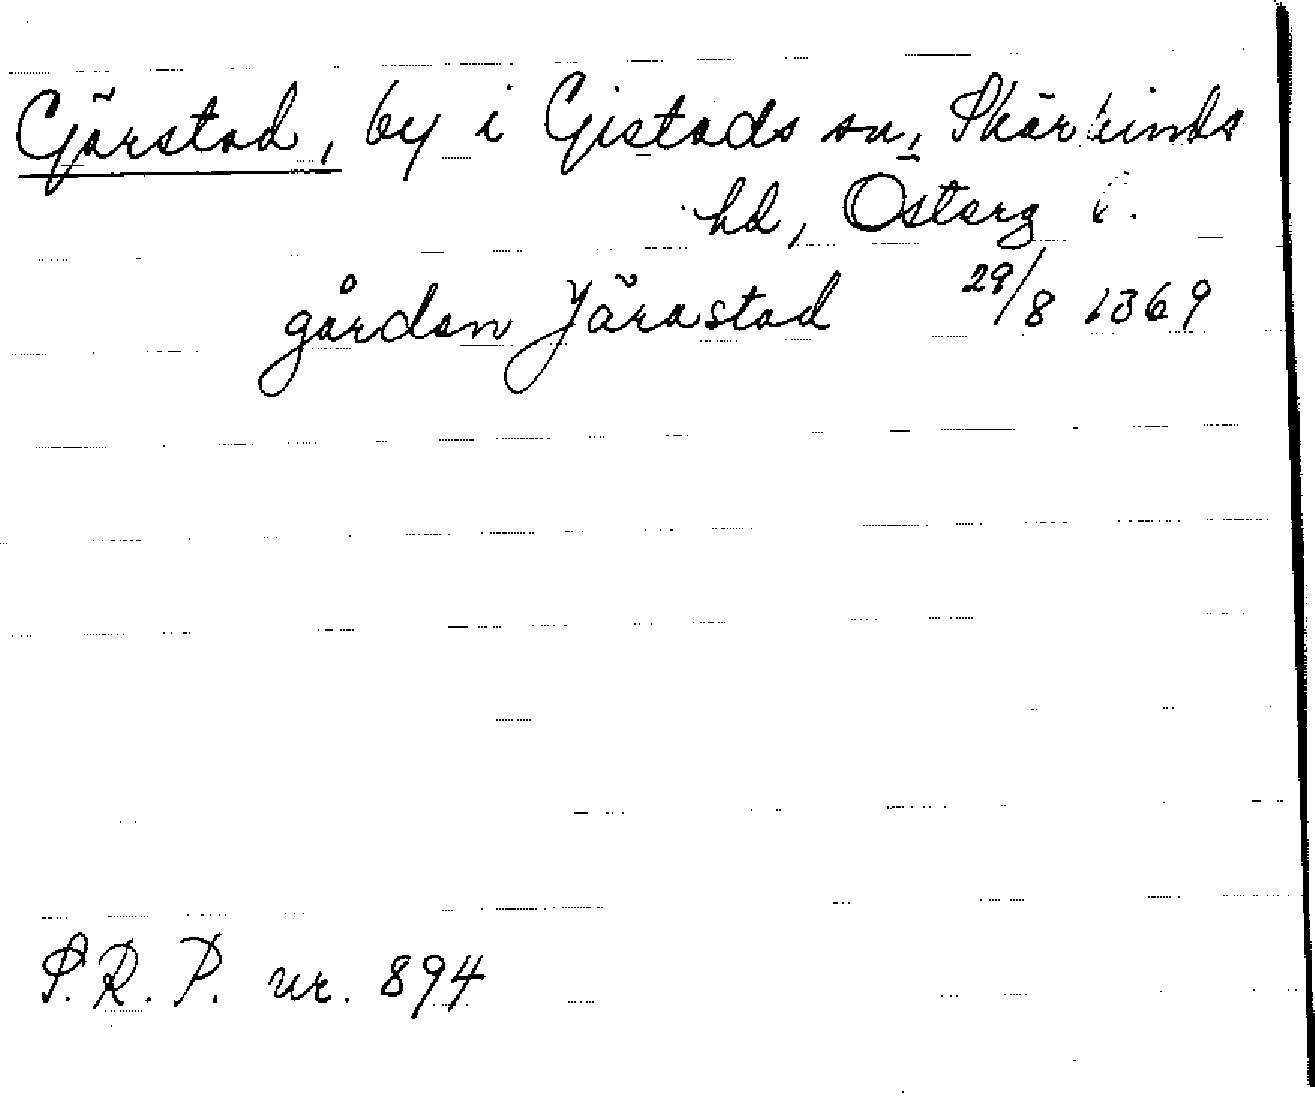 Gärstad, by i Gistads sn, Skärkinds
hd, Österg
gården Järastad 29/8 1369
S.R.P. nr. 894